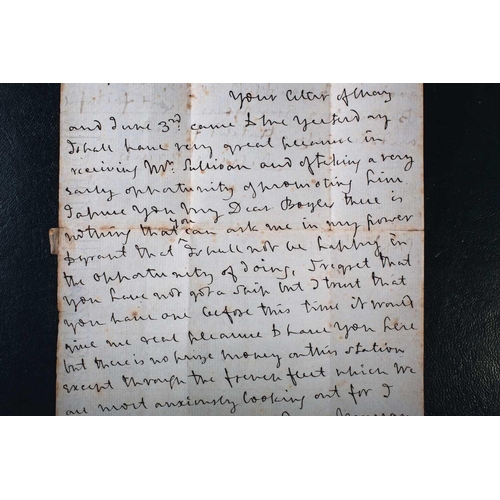 Your letter of May
and June 3rd came to me Yesterday
I shall have very great pleasure in
receiving Mr. Sullivan and of taking a very
early opportunity of promoting him
I assure You My Dear Boyle there is
nothing that you can ask me in my power
to grant that I shall not be happy in
the opportunity of doing, I regret that
You have not got a ship but I trust that
you have one before this time it would
give me real pleasure to have You here
but there is no prize money on this station
except through the french fleet which We
are most anxiously looking out for I